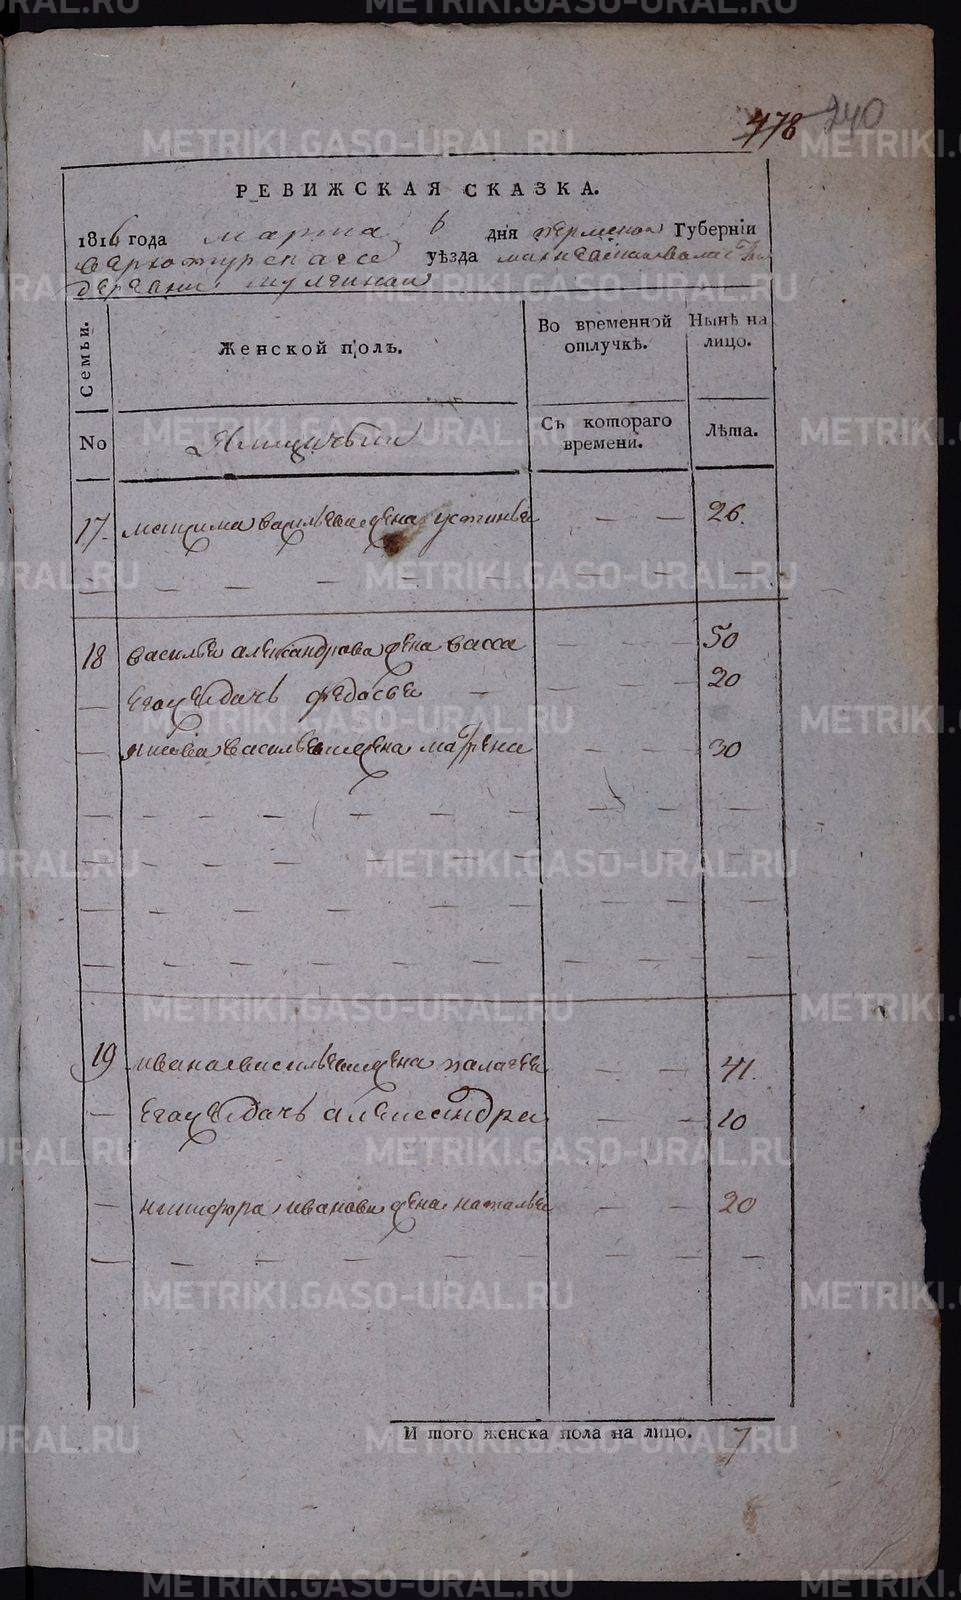 478 240
РЕВИЖСКАЯ СКАЗКА.
1816 года марта 6 дня пермской Губернїи
верхотурскаго уѣзда волости
деревни
Семьи. Женской полъ. Во временной отлучкѣ. Нынѣ на лицо.
No Съ котораго времени. Лѣта.
17. максима васильева жена устинья — — 26.
18 василья александрова жена васса — — 50
— его же дочь федосья — — — 20
— якова васильева жена матрена — — 30
19 ивана васильева жена палагея — — 41.
— его же дочь александра — — 10
— никифора иванова жена наталья — — 20
И того женска пола на лицо. 7
METRIKI.GASO-URAL.RU